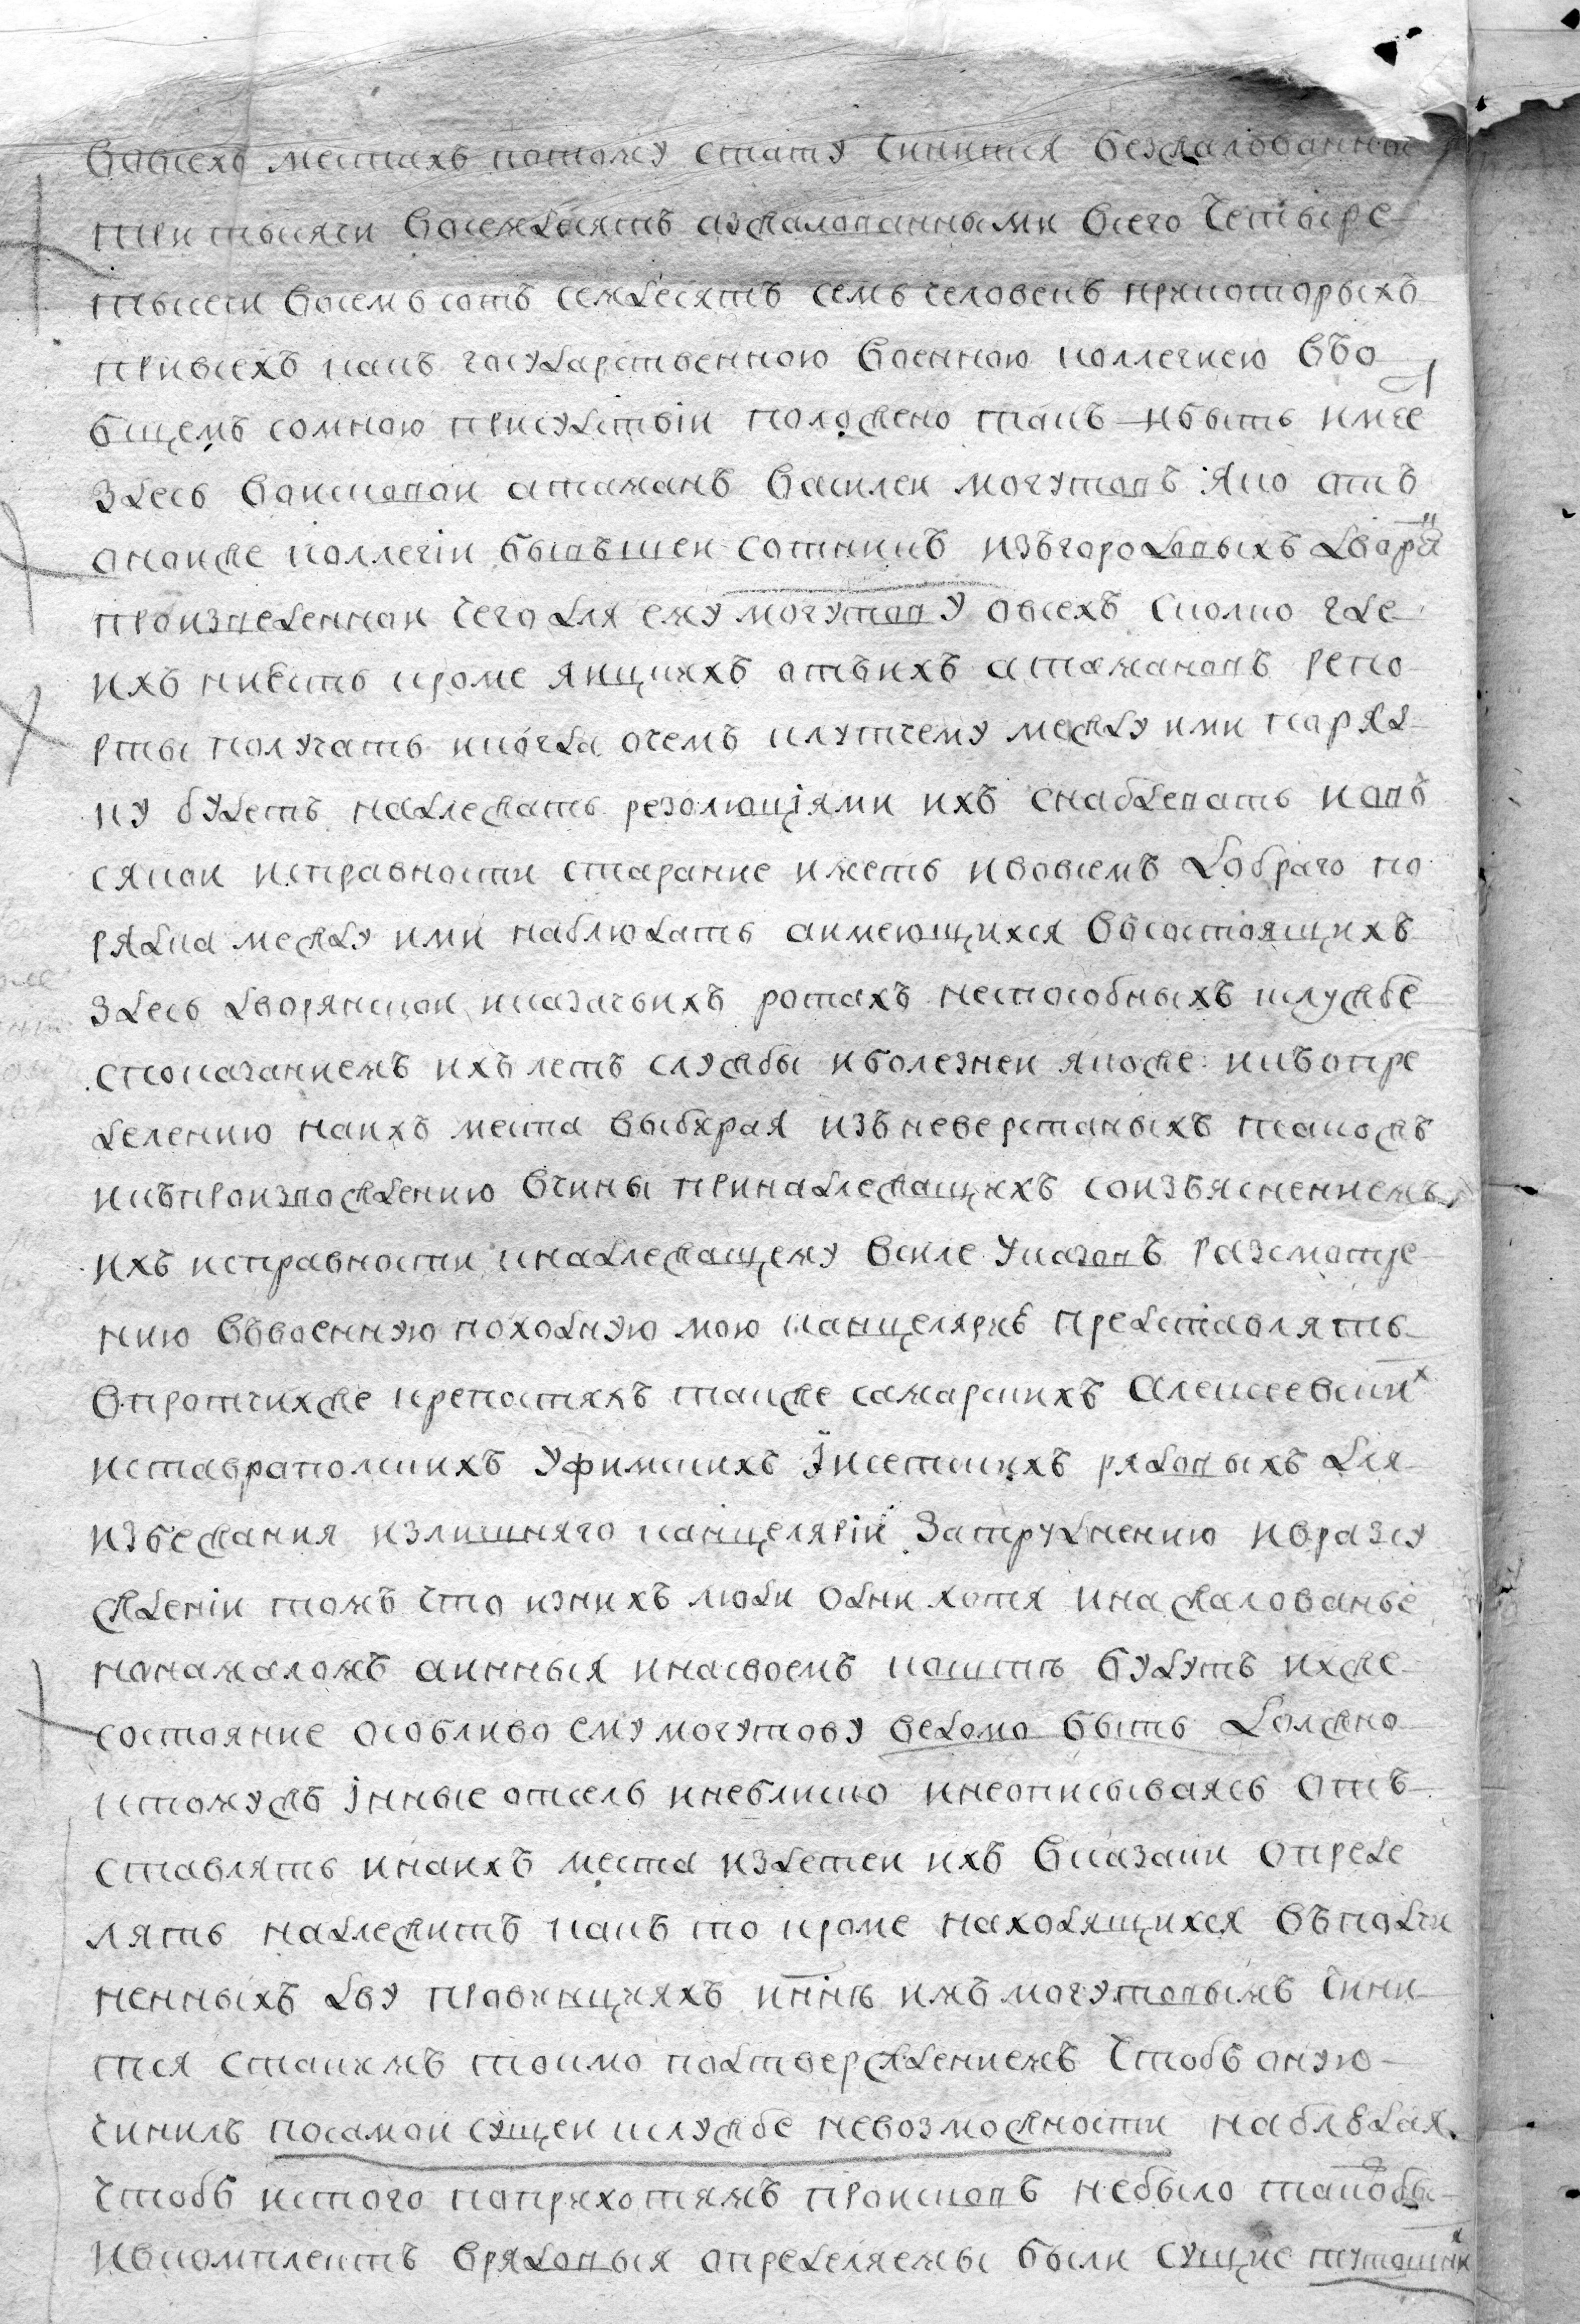 вовсехъ местахъ потому стату чинится безжалованной
три тысячи восемдесятъ азжалованными всего четыре
тысечи восемь сотъ семдесятъ семь человекъ прикоторыхъ
привсехъ какъ государственною военною коллегиею въо
бщемъ сомною присудствіи положено такъ ибыть имее
здесь воисковои атаманъ василеи могутовъ яко отъ
оноиже коллегіи бывъшеи сотникъ изъгородовыхъ дворя
произведеннои чего для ему могутову овсехъ сколко где
ихъ ниесть кроме яицкихъ отъихъ атамановъ репо
рты получать икогда очемъ клутчему между ими поряд
ку будетъ надлежать резолюціями ихъ снабдевать ковъ
сякои исправности старание иметь ивовсемъ доброго по
рядка между ими наблюдать аимеющихся въсостоящихъ
здесь дворянскои иказачьихъ ротахъ неспособныхъ кслужбе
споказаниемъ ихъ летъ службы иболезнеи якоже икъопре
делению наихъ места выбирая изъневерстаныхъ такожъ
икъпроизвождению вчины принадлежащихъ соизъяснениемъ
ихъ исправности кнадлежащему всиле указовъ разсмотре
нию въвоенную походную мою канцелярию представлять
впротчихже крепостяхъ также самарскихъ алексеевскихъ
иставрапольскихъ уфимскихъ іисетскихъ рядовыхъ для
избежания излишняго канцеляріи затруднению ивразсу
ждении томъ что изнихъ люди одни хотя инажалованье
нонамаломъ аинныя инасвоемъ коштъ будутъ ихже
состояние особливо ему могутову ведомо быть должно
ктомужъ інные отсель инеблиско инеописываясь отъ
ставлять инаихъ места издетеи ихъ вказаки опреде
лять надлежитъ какъ то кроме находящихся въподчи
ненныхъ дву правинцияхъ инне имъ могутовымъ чини
тся стакимъ токмо подтверждениемъ чтобъ оную
чинилъ посамои сущеи кслужбе невозможности наблюдая
чтобъ истого поприхотямъ происковъ небыло такобы
ивкомплектъ врядовыя определяемы были сущие